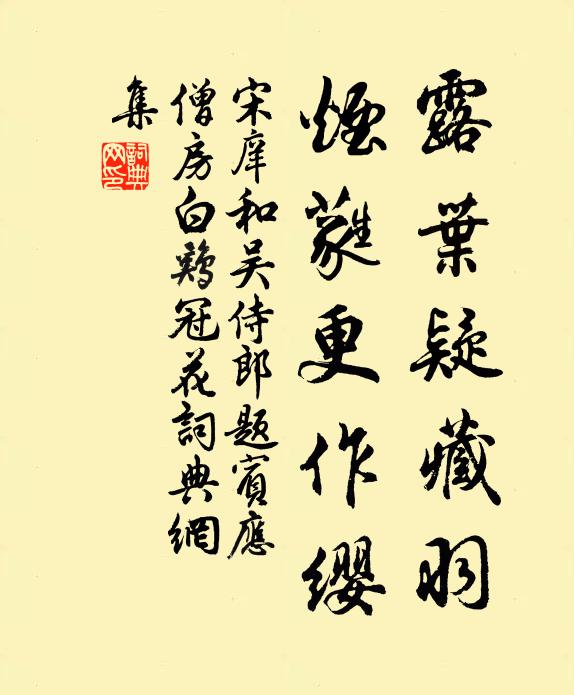 露葉疑藏羽
煙蕤更作纓
宋庠和吴侍郎題賓應
僧房白鷄冠花詞典網
集
詞典
网印